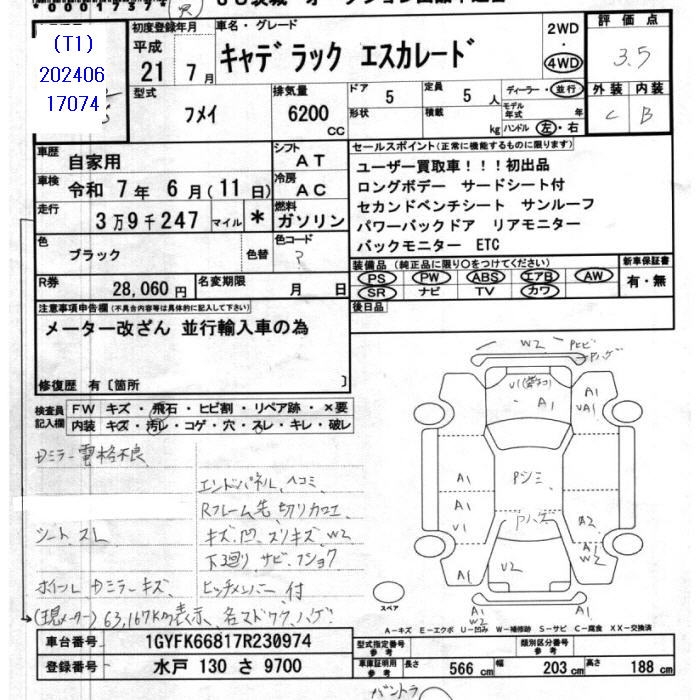 (T1)
202406
17074
初度登録年月
平成
21年 7月
車名・グレード
キャデラック エスカレード
2WD
・
4WD
評価点
3.5
外装 内装
C B
型式
フメイ
排気量
6200
CC
ドア
5
形状
定員
5人
積載
kg
ディーラー・並行
モデル年式 年
ハンドル 左・右
車歴
自家用
シフト
AT
車検
令和 7年 6月(11日)
冷房
AC
走行
3万9千247 マイル *
燃料
ガソリン
色
ブラック
色替
色コード
?
R券
28,060円
名変期限
月 日
セールスポイント(正常に機能するものに限ります)
ユーザー買取車!!!初出品
ロングボデー サードシート付
セカンドベンチシート サンルーフ
パワーバックドア リアモニター
バックモニター ETC
装備品(純正品に限り○をつけてください)
PS PW ABS エアB AW
SR ナビ TV カワ
新車保証書
有・無
後日品
注意事項申告欄(不具合内容等は具体的に記入して下さい)
メーター改ざん 並行輸入車の為
修復歴 有〔箇所 〕
検査員
記入欄
FW キズ・飛石・ヒビ割・リペア跡・×要
内装 キズ・汚レ・コゲ・穴・スレ・キレ・破レ
Dミラー電格不良
エンドパネル、ヘコミ
Rフレーム先、切りカコエ
シートスレ
キズ、凹、スリキズ、W2
下廻り サビ、フショク
ホイール、Dミラーキズ
ヒッチメンバー付
(現メーター)63,167km表示、各マドワク、ハゲ
W2 PヒビPハゲ
A1
A1
A1
PシミA1
A1
V1
Pハゲ
A2
A1
W2
A1
V2
A1
W2
A1
スペア
A-キズ E-エクボ U-凹み W-補修跡 S-サビ C-腐食 XX-交換済
車台番号
1GYFK66817R230974
登録番号
水戸 130 さ 9700
型式指定番号
参考
類別区分番号
参考
車庫証明用
参考
長さ 566 cm
幅 203 cm
高さ 188 cm